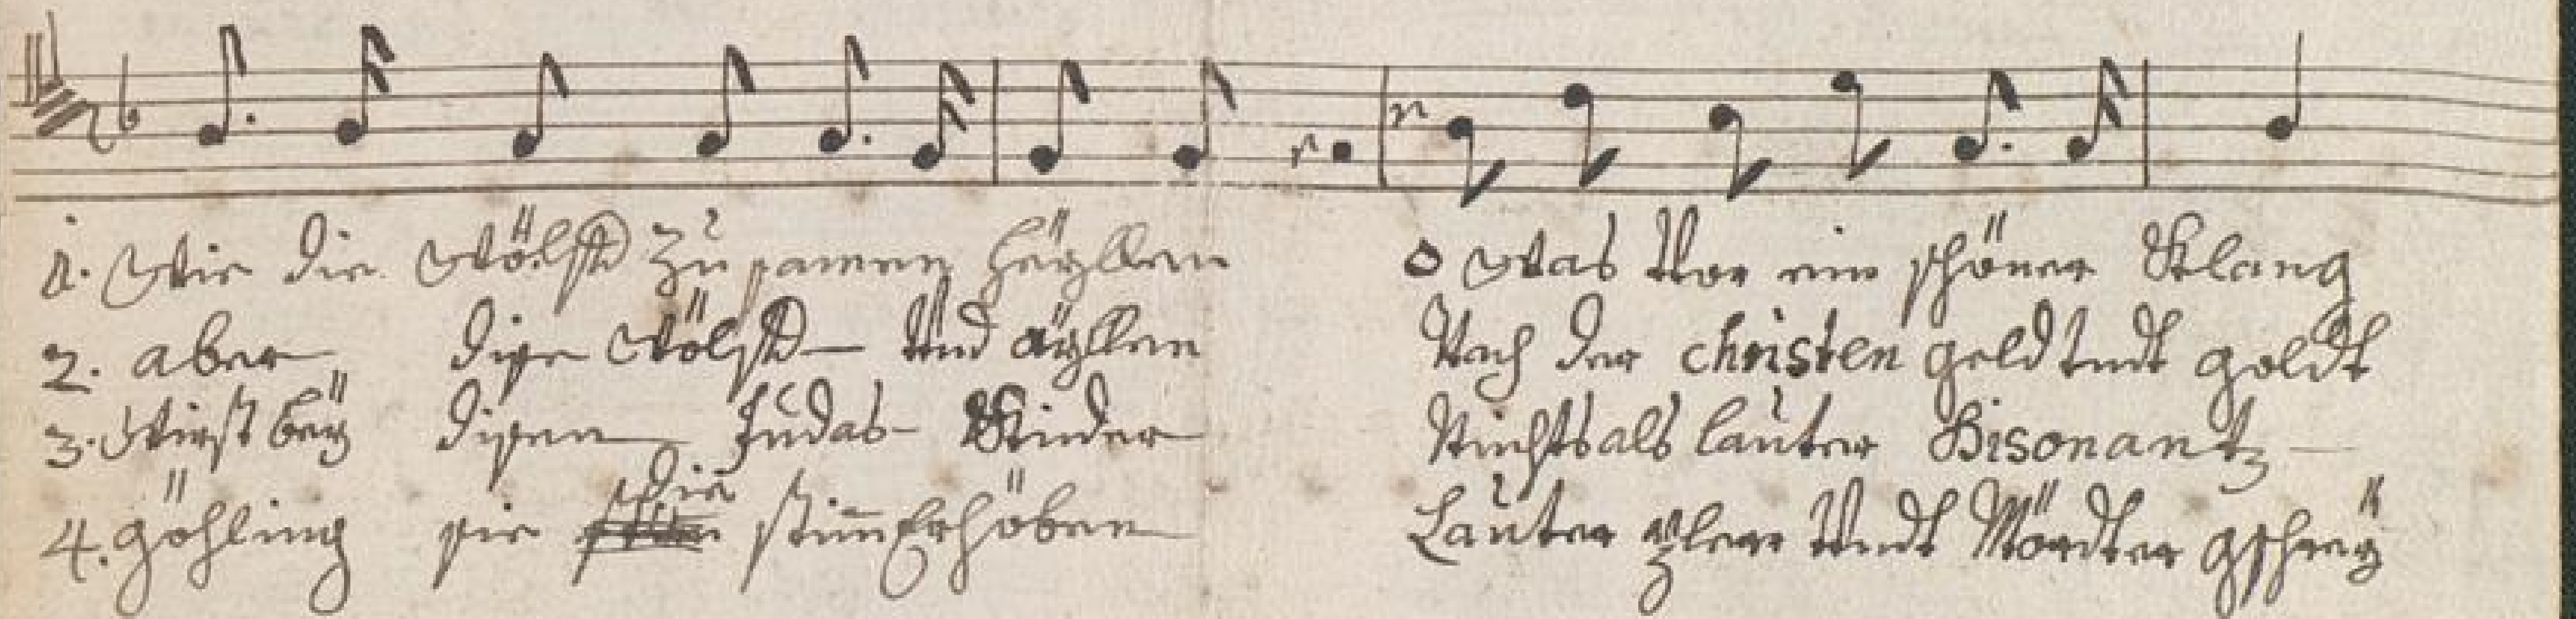 1. Wie die Wölff zusamen heÿllen o was Vor ein schöner Klang
2. aber dise Wölff Und äÿllen Nach der christen geld Undt goldt
3. Wirst beÿ disen Judas Kinder Nichts als lauter Disonantz
4. göhling sie die stim̄ Erhöben Lauter Undt Mördter gschreÿ